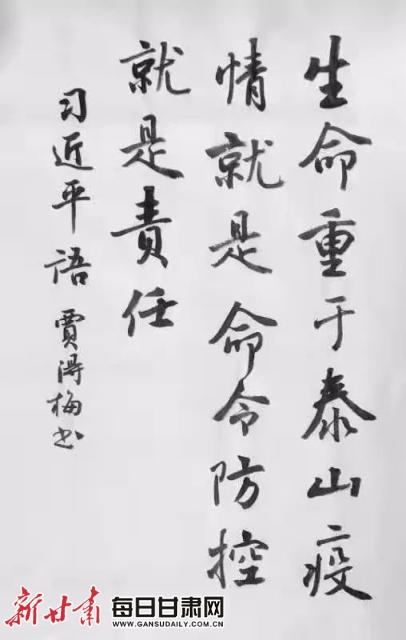 生命重于泰山疫
情就是命令防控
就是責任
习近平语 賈得梅书
新甘肃 每日甘肃网
WWW.GANSUDAILY.COM.CN